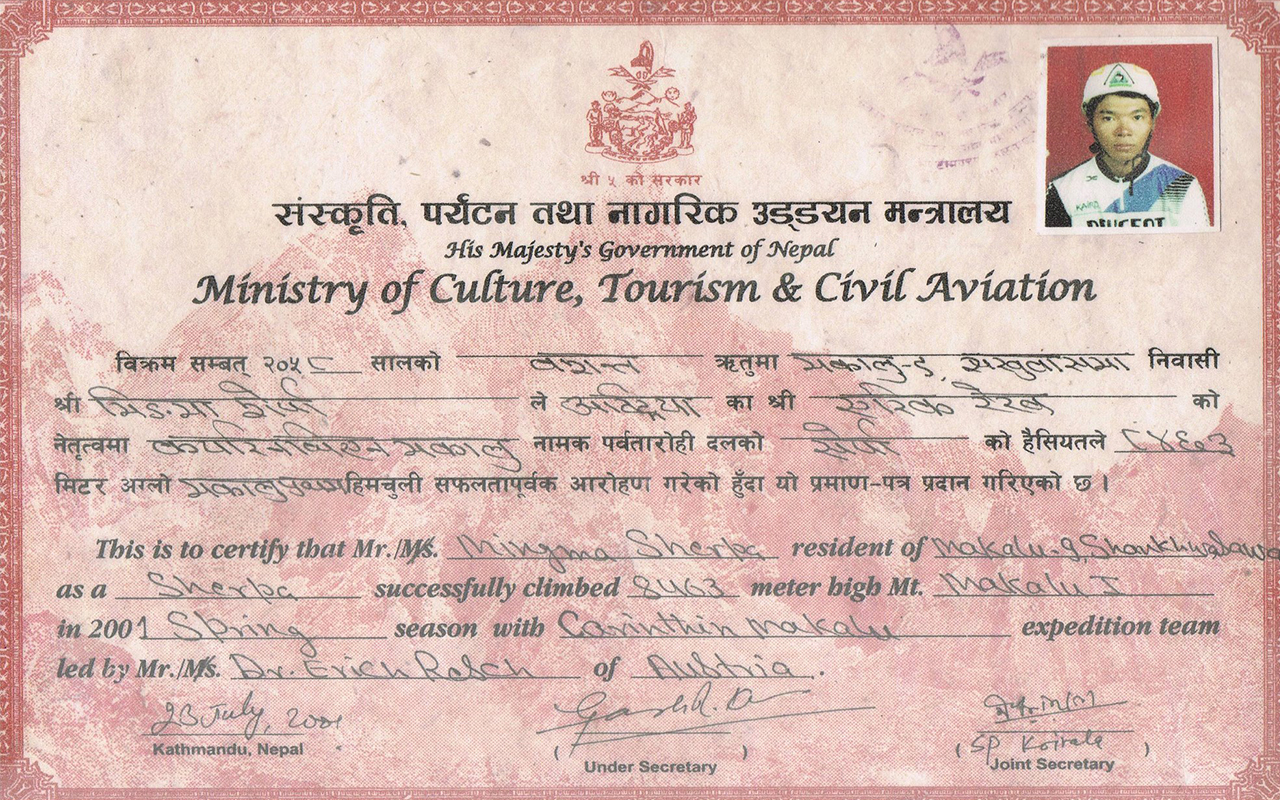 श्री ५ को सरकार
संस्कृति, पर्यटन तथा नागरिक उड्डयन मन्त्रालय
His Majesty's Government of Nepal
Ministry of Culture, Tourism & Civil Aviation
विक्रम सम्बत् २०५८ सालको ऋतुमा मकालु-९ संखुवासभा निवासी
श्री मिङमा शेर्पा ले अष्ट्रिया का श्री को
नेतृत्वमा मकालु नामक पर्वतारोही दलको शेर्पा को हैसियतले ८४६३
मिटर अग्लो मकालु प्रथम हिमचुली सफलतापूर्वक आरोहण गरेको हुँदा यो प्रमाण-पत्र प्रदान गरिएको छ ।
This is to certify that Mr./Ms. Mingma Sherpa resident of Makalu-9, Shankhuwasava
as a Sherpa successfully climbed 8463 meter high Mt. Makalu I
in 2001 Spring season with Carinthin Makalu expedition team
led by Mr./Ms. Dr. Erich of Austria.
23 July, 2001
Kathmandu, Nepal
( )
Under Secretary
(SP Koirala)
Joint Secretary
PEUGEOT